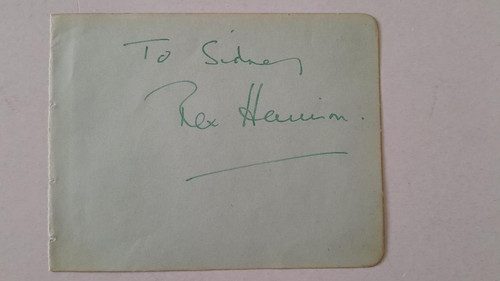 To Sidney
Rex Harrison.